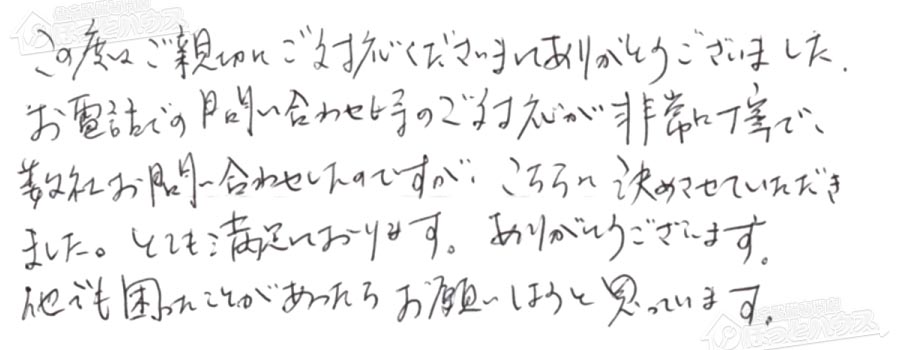 この度はご親切にご対応くださいましてありがとうございました.
お電話での問い合わせ時のご対応が非常に丁寧で、
数社お問い合わせしたのですが、こちらに決めさせていただき
ました。とても満足しております。ありがとうございます。
他でも困ったことがあったらお願いしようと思っています。
ほっとハウス
ほっとハウス